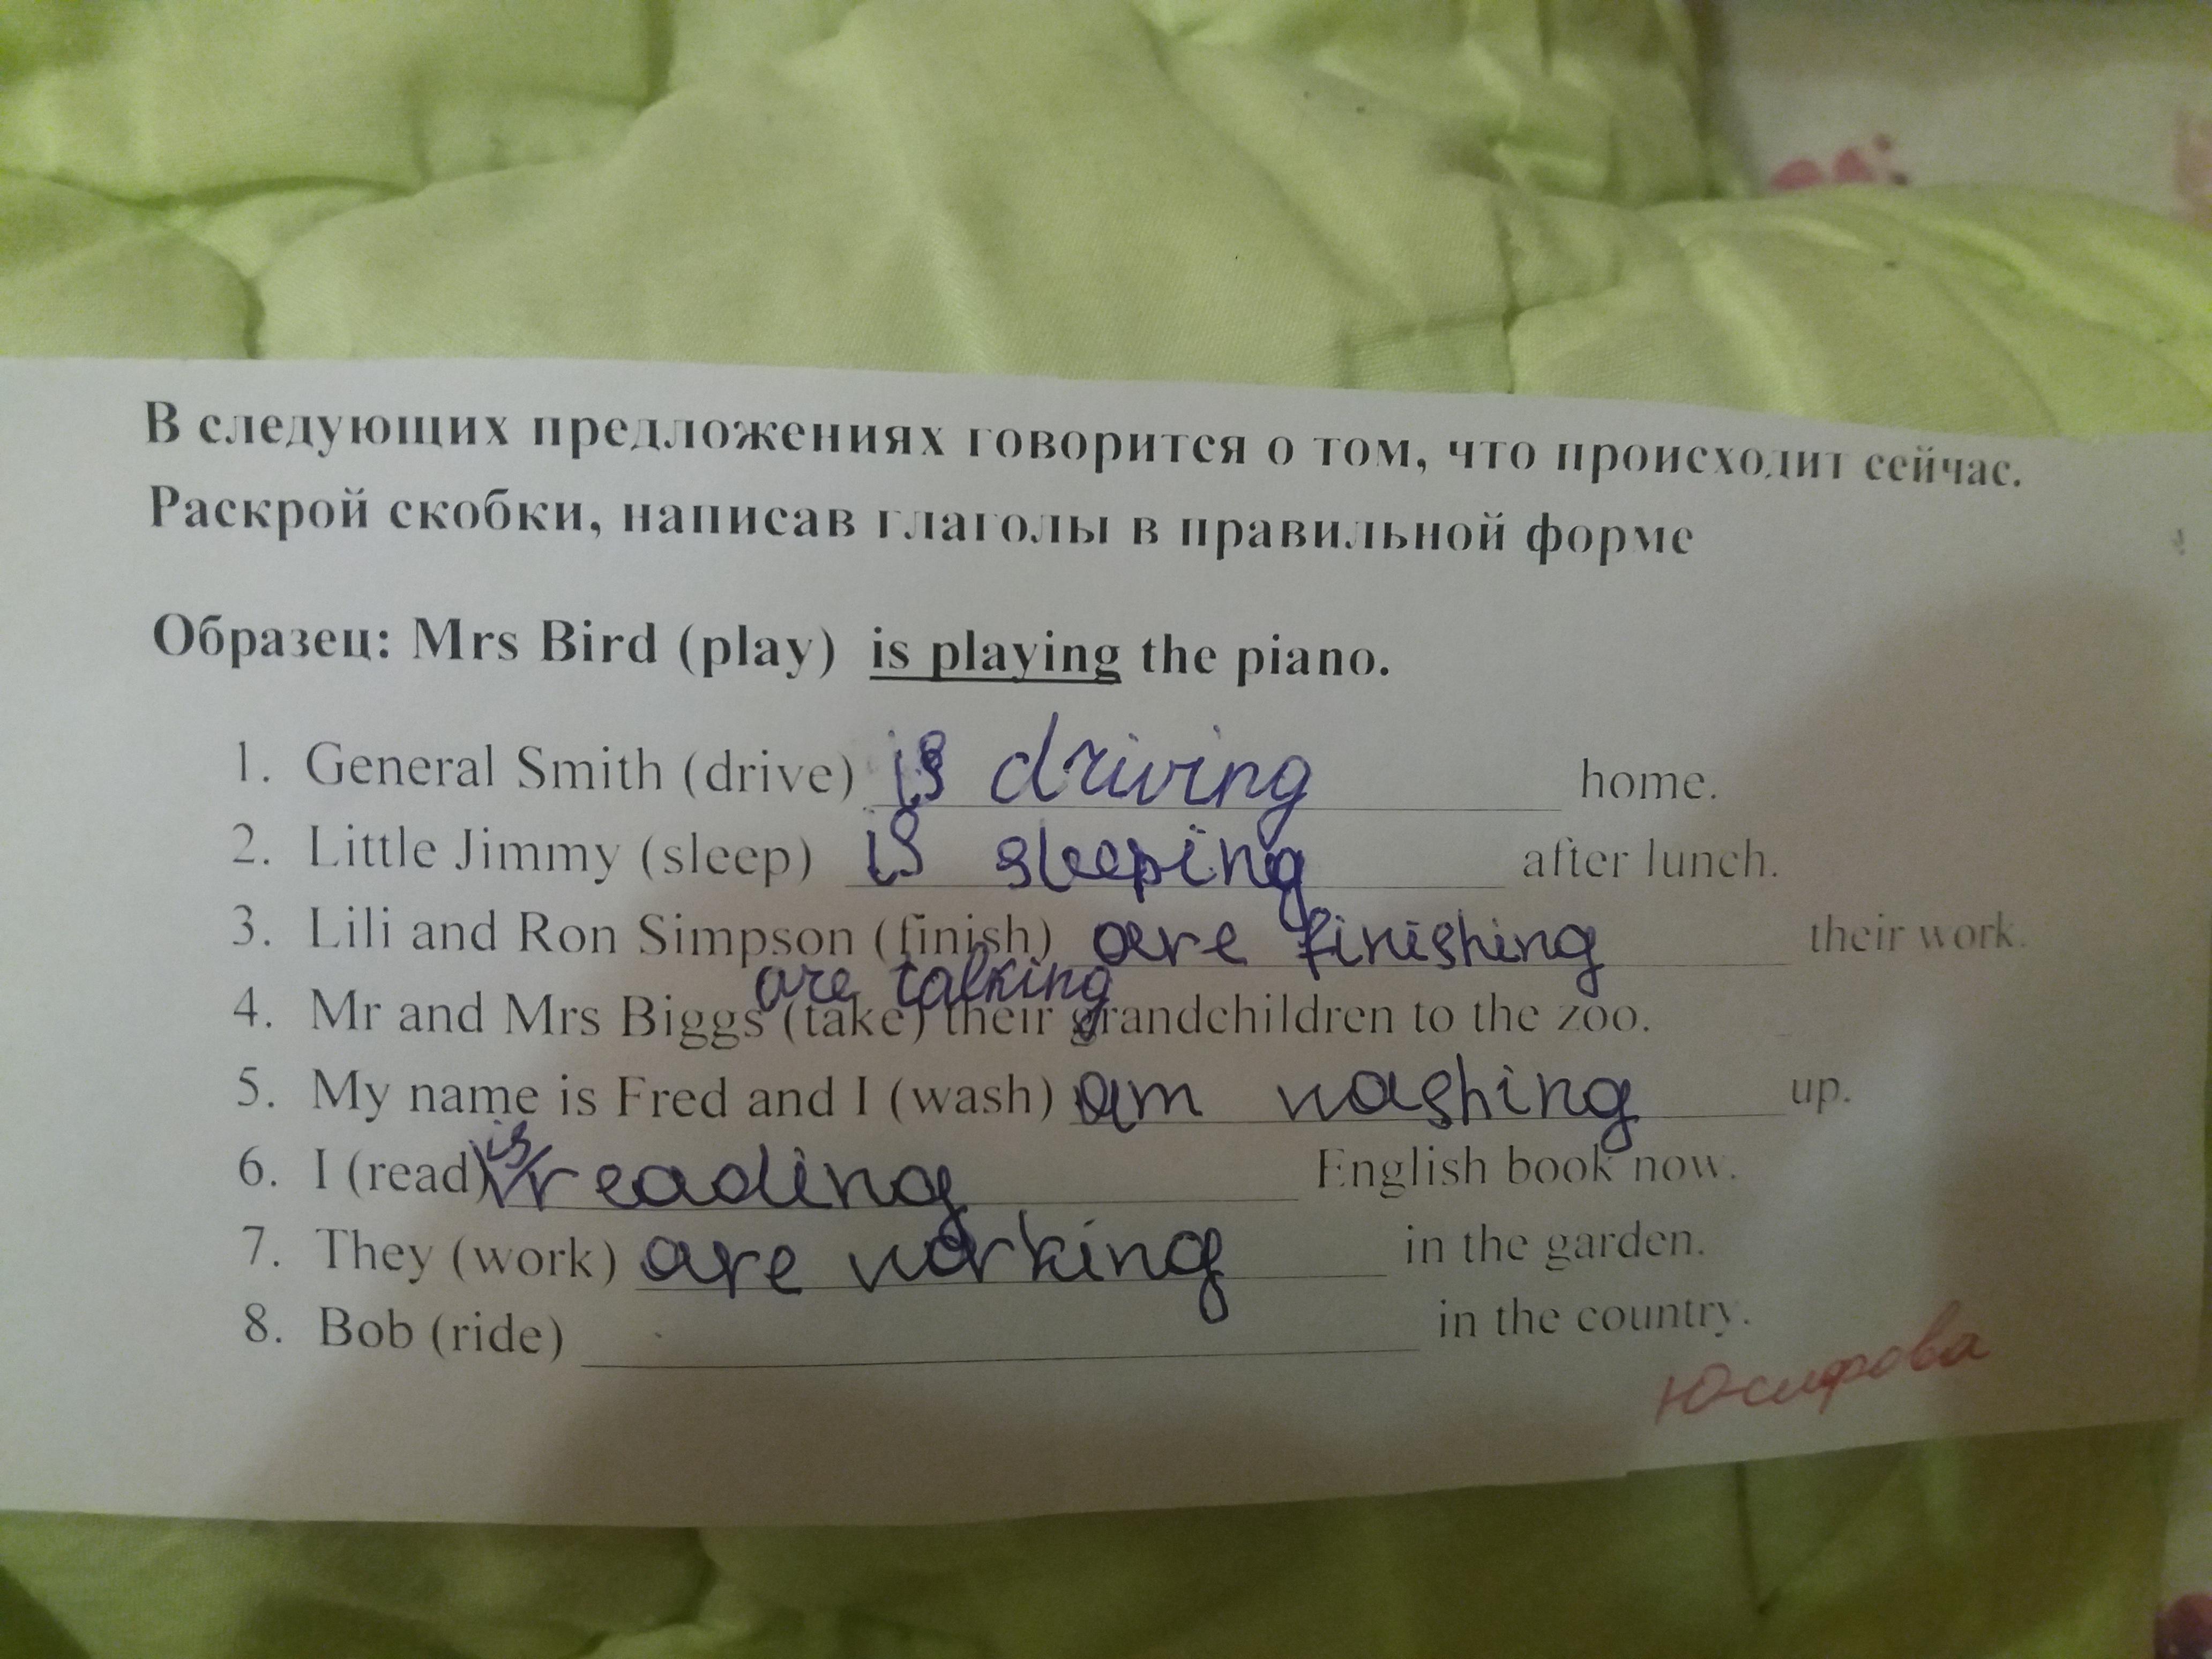 В следующих предложениях говорится о том, что происходит сейчас.
Раскрой скобки, написав глаголы в правильной форме
Образец: Mrs Bird (play) is playing the piano.
1. General Smith (drive) is driving home.
2. Little Jimmy (sleep) is sleeping after lunch.
3. Lili and Ron Simpson (finish) are finishing their work.
are talking
4. Mr and Mrs Biggs (take) their grandchildren to the zoo.
5. My name is Fred and I (wash) am washing up.
6. I (read) is reading English book now.
7. They (work) are working in the garden.
8. Bob (ride) in the country.
Юсифова